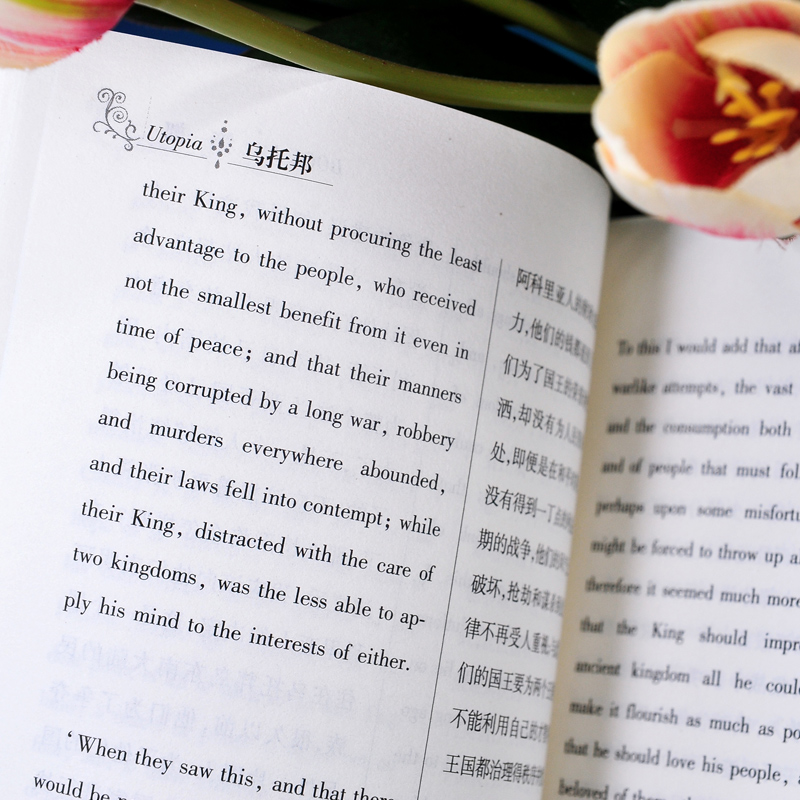 Utopia 乌托邦
their King, without procuring the least
advantage to the people, who received
not the smallest benefit from it even in
time of peace; and that their manners
being corrupted by a long war, robbery
and murders everywhere abounded,
and their laws fell into contempt; while
their King, distracted with the care of
two kingdoms, was the less able to ap-
ply his mind to the interests of either.
‘When they saw this, and that there
would be
阿科里亚人的
力,他们的钱都
们为了国王的
洒,却没有为人
处,即便是在和平
没有得到一丁点
期的战争,他们的
破坏,抢劫和谋杀
律不再受人重视
们的国王要为两个
不能利用自己的才
王国都治理得秩
To this I would add that
warlike attempts, the vast
and the consumption both
and of people that must
perhaps upon some
might be forced to throw up
therefore it seemed much more
that the King should
ancient kingdom all he
make it flourish as much as
that he should love his people,
beloved of them